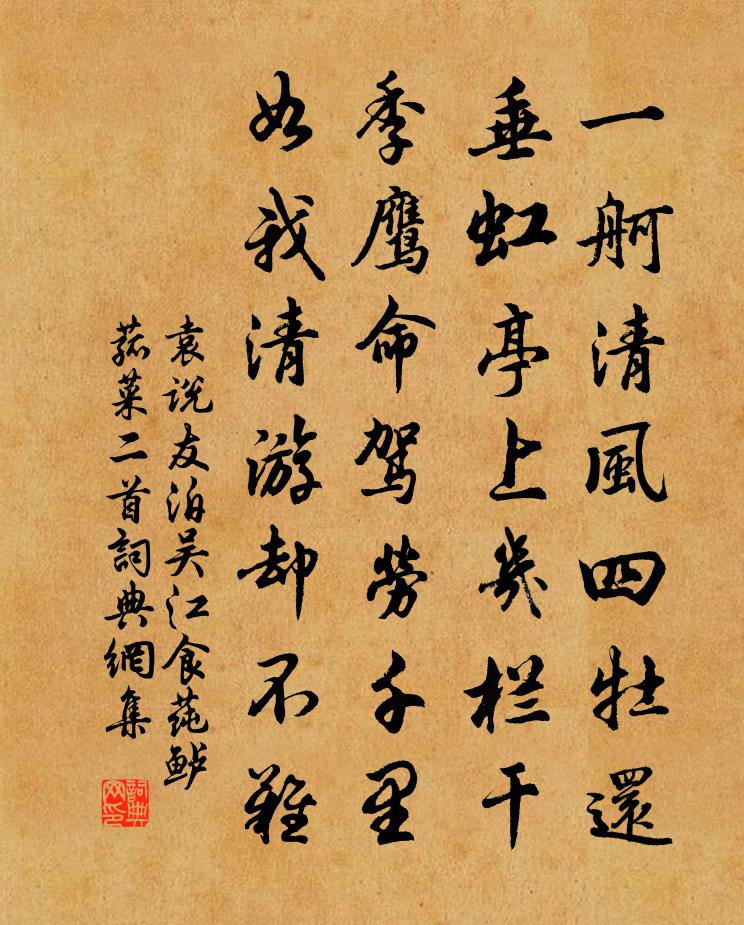 一舸清風四牡還
垂虹亭上幾栏干
季鷹命駕勞千里
如我清游却不難
袁说友泊吴江食莼鲈
菰菜二首詞典網集
詞典网印